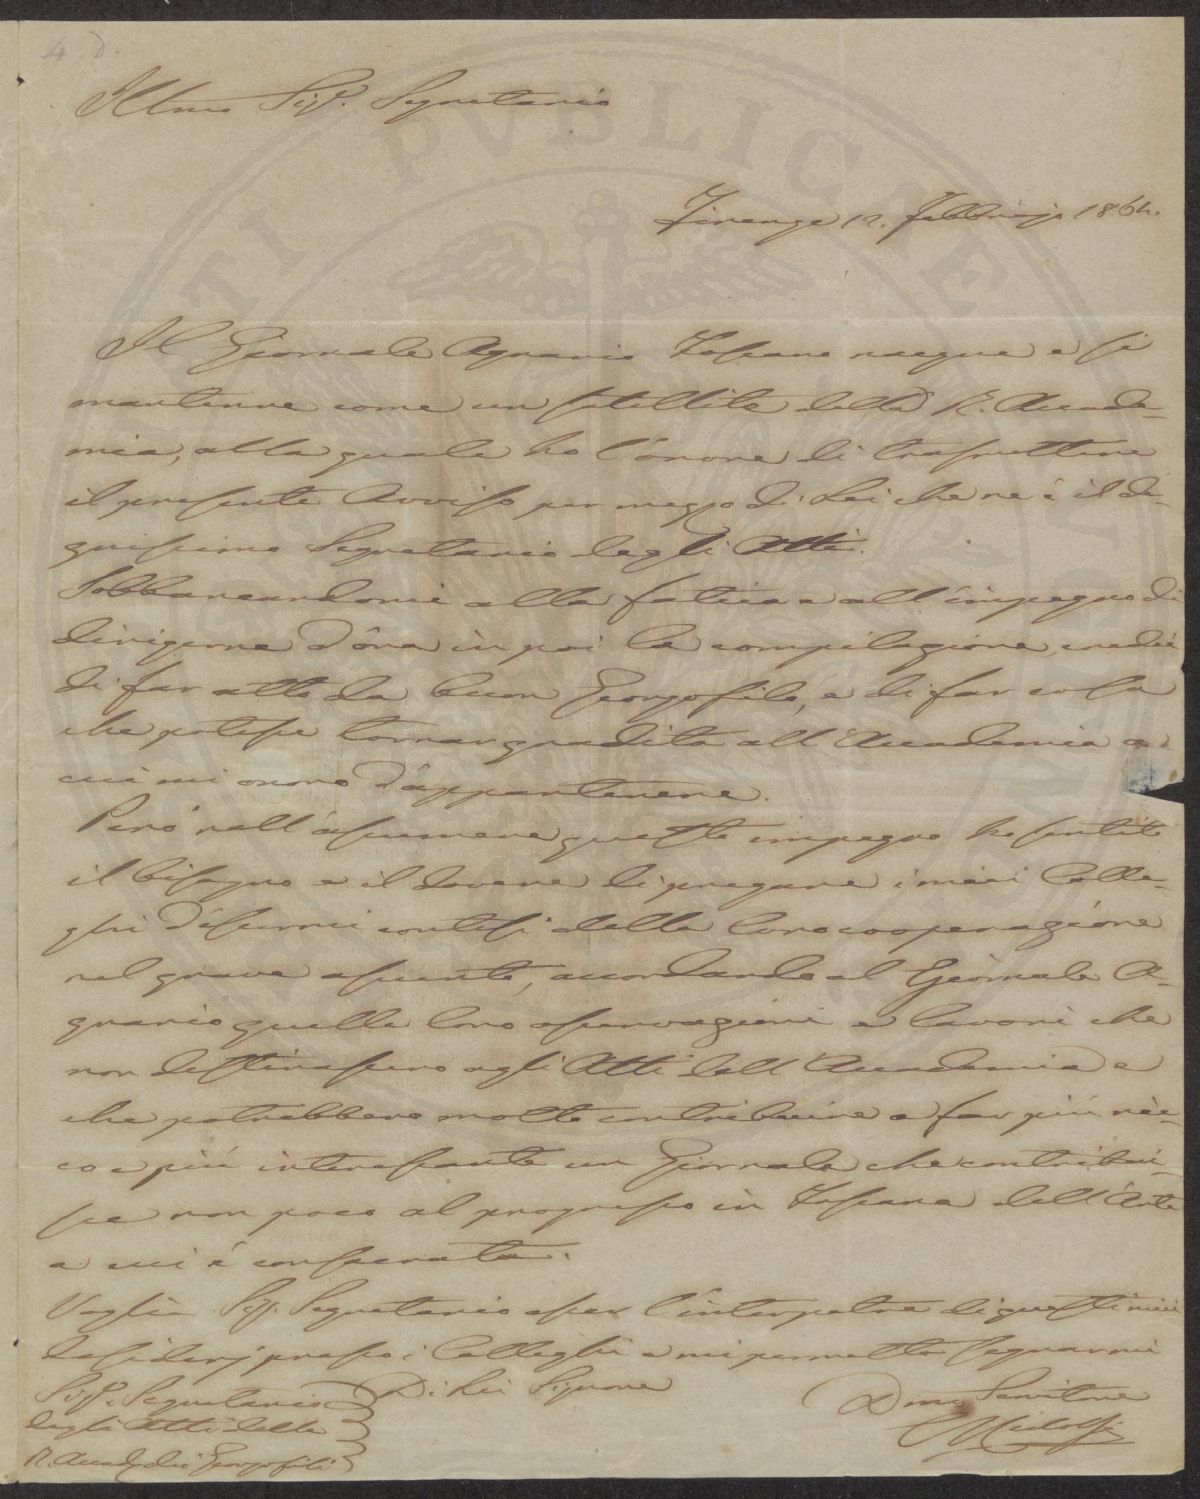 4 D.
Illmo Sigr. Segretario
Firenze 12. Febbrajo 1864.
Il Giornale Agrario Toscano nacque e si
mantenne come un satellite della R. Accade-
mia, alla quale ho l'onore di trasmettere
il presente Avviso per mezzo di Lei che ne è il de-
gnissimo Segretario degli Atti.
Sobbarcandomi alla fatica e all'impegno di
dirigerne d'ora in poi la compilazione, credei
di far atto da buon Georgofilo, e di far cosa
che potesse tornar gradita all'Accademia a
cui mi onoro d'appartenere.
Però nell'assumere questo impegno ho sentito
il bisogno e il dovere di pregare i miei Colle-
ghi d'essermi cortesi della loro cooperazione
nel grave assunto, accordando al Giornale A-
grario quelle loro osservazioni e lavori che
non destinassero agli Atti dell'Accademia e
che potrebbero molto contribuire a far più ric-
co e più interessante un Giornale che contribui-
sce non poco al progresso in Toscana dell'Arte
a cui è consacrato.
Voglia Sigr. Segretario esser l'interpetre di questi miei
desiderj presso i Colleghi e mi permetta segnarmi
Di Lei Signore
Sigr. Segretario
degli Atti della
R. Accad. dei Georgofili
Dmo Servitore
CRidolfi
PVBLICAE